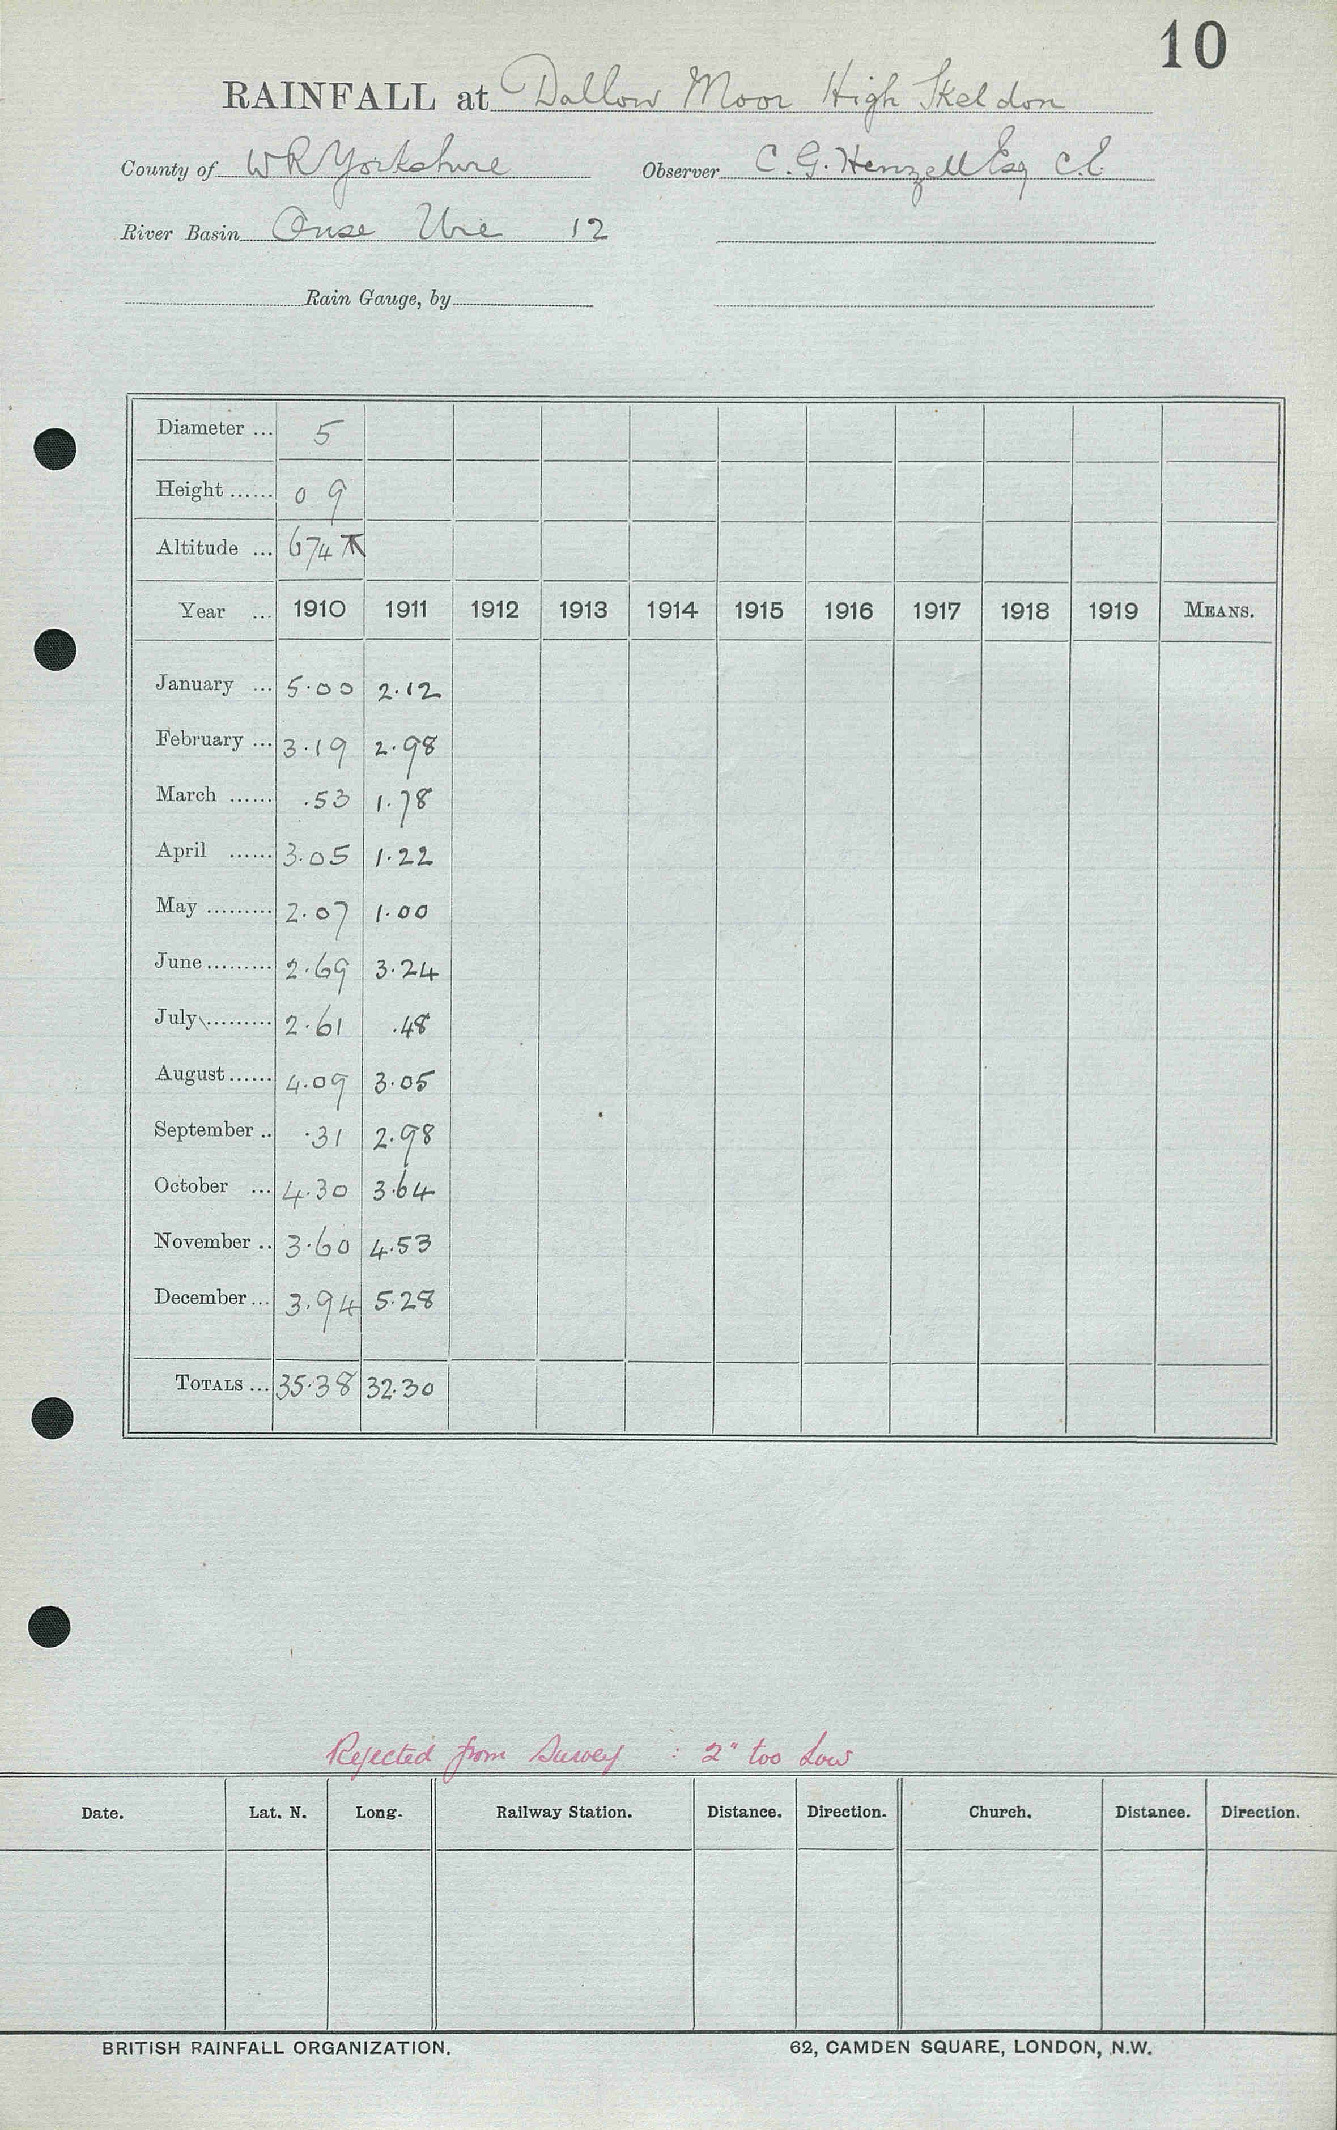 10
RAINFALL at Dallow Moor High Skeldon
County of W R Yorkshire Observer C. G. Henzell Esq C.E.
River Basin Ouse Ure 12
Rain Gauge, by
Diameter ... 5
Height ...... 0 9
Altitude ... 674
Year ... 1910 1911 1912 1913 1914 1915 1916 1917 1918 1919 MEANS.
January ... 5.00 2.12
February ... 3.19 2.98
March ...... .53 1.78
April ...... 3.05 1.22
May ......... 2.07 1.00
June ......... 2.69 3.24
July ......... 2.61 .48
August ...... 4.09 3.05
September .. .31 2.98
October ... 4.30 3.64
November .. 3.60 4.53
December ... 3.94 5.28
TOTALS ... 35.38 32.30
Rejected from Survey : 2" too low
Date. Lat. N. Long. Railway Station. Distance. Direction. Church. Distance. Direction.
BRITISH RAINFALL ORGANIZATION. 62, CAMDEN SQUARE, LONDON, N.W.